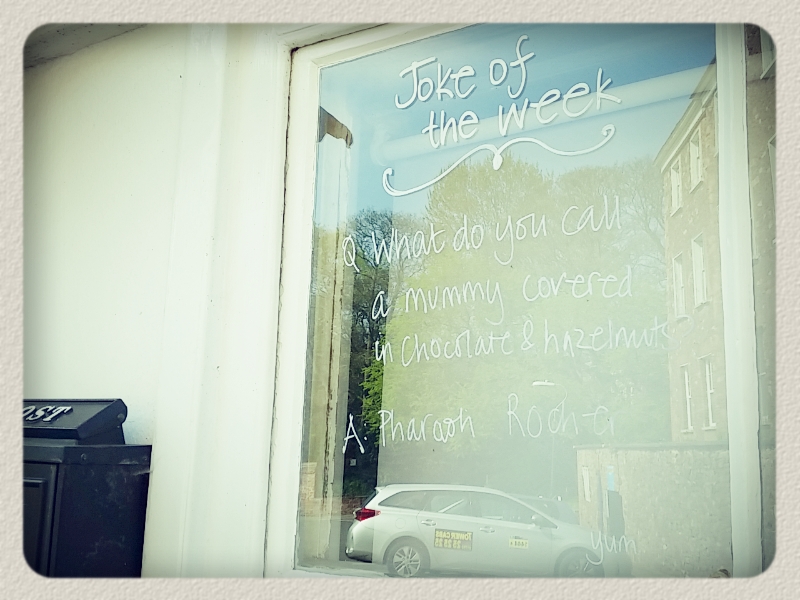 Joke of
the week
Q What do you call
a mummy covered
in chocolate & hazelnuts
A. Pharaoh Rocher
yum
OST
TOWER CABS